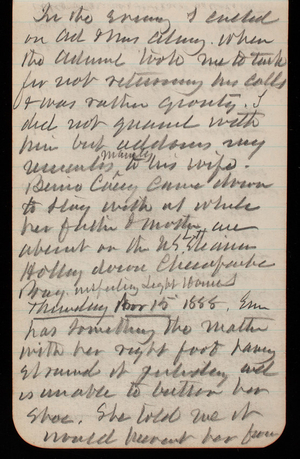 In the evening I called
on Ad & Mrs Almy. when
the Admrl took me to task
for not returning his calls
& was rather grouty. I
did not quarrel with
him but address my
remarks mainly to his wife.
Casey came down
to stay with us while
her father & mother are
absent on the US Steamer
Holly down Chesapeake
Bay. inspecting Light Houses
Thursday Nov 15 1888. Em
has something the matter
with her right foot having
strained it yesterday and
is unable to button her
shoe. She told me it
would prevent her from